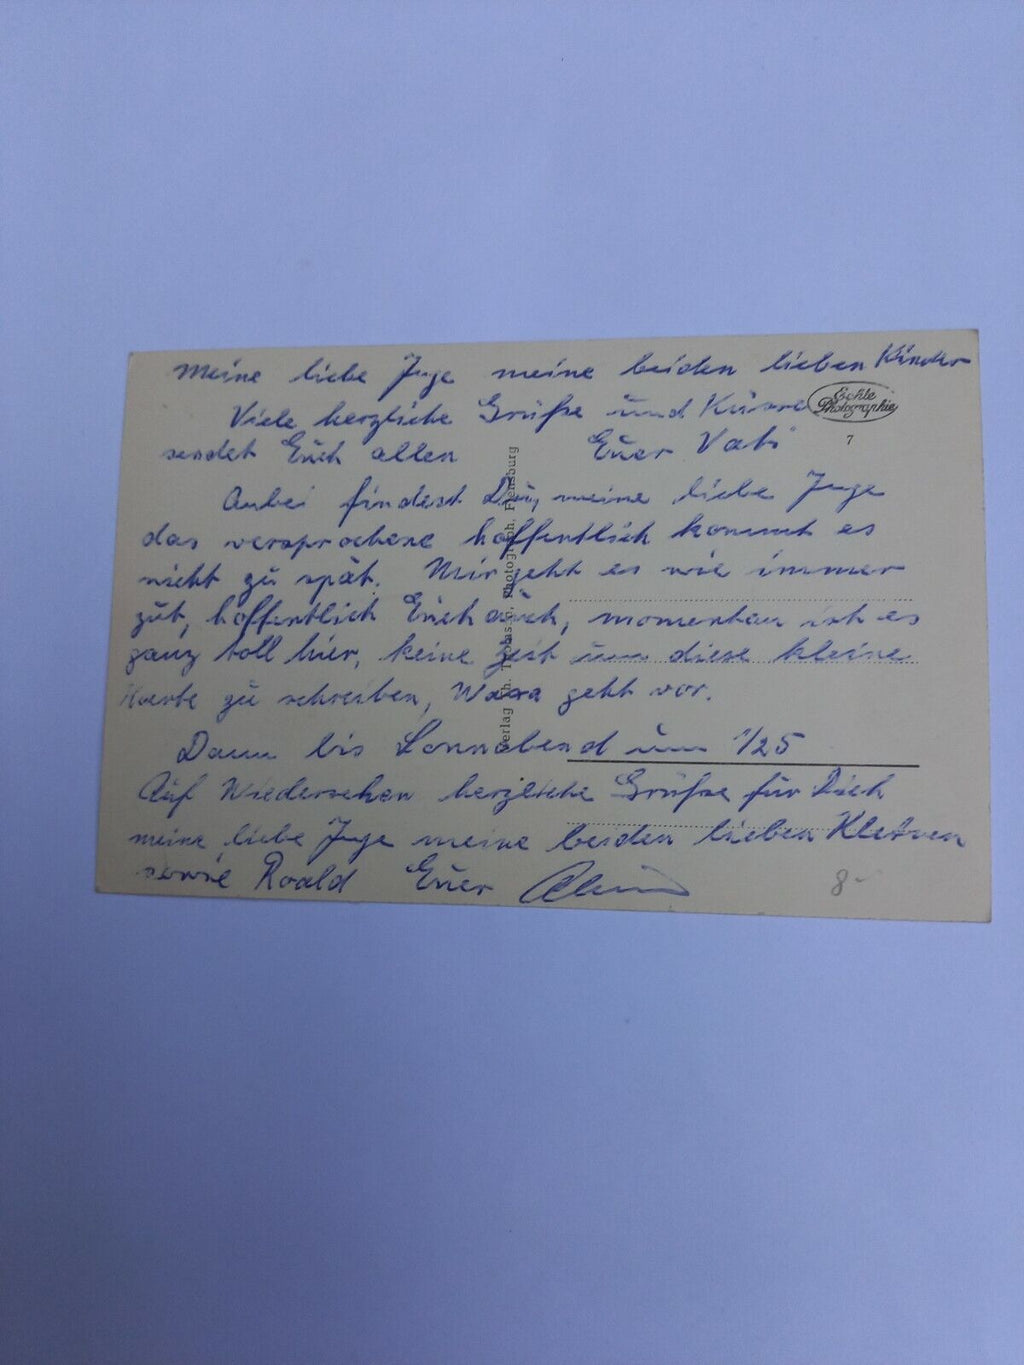 Meine liebe Inge meine beiden lieben Kinder
Echte
Photographie
7
Viele herzliche Grüße und Küsse
sendet Euch allen Euer Vati
Anbei findest Du, meine liebe Inge
das versprochene hoffentlich kommt es
nicht zu spät. Mir geht es wie immer
gut, hoffentlich Euch auch, momentan ist es
ganz toll hier, keine Zeit um diese kleine
Karte zu schreiben, geht vor.
Dann bis Sonnabend um 1/25
Auf Wiedersehen herzliche Grüße für Dich
meine liebe Inge meine beiden lieben
sowie Roald Euer
8-
Verlag Photograph. Flensburg